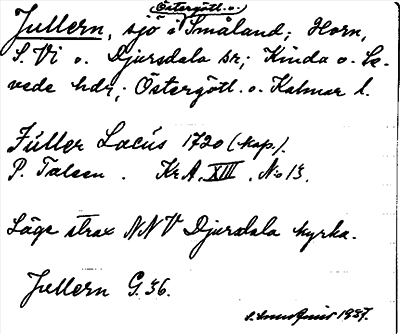 Östergötl. o.
Jullern, sjö i Småland; Horn,
S. Vi o. Djursdala sr; Kinda o. Se-
vede hdr; Östergötl. o. Kalmar l.
Jüller Lacús 1720 (kap.).
P. Talsen. Kr A. XIII, No 13.
Läge strax NNV Djursdala kyrka.
Jullern G. 36.
1937.